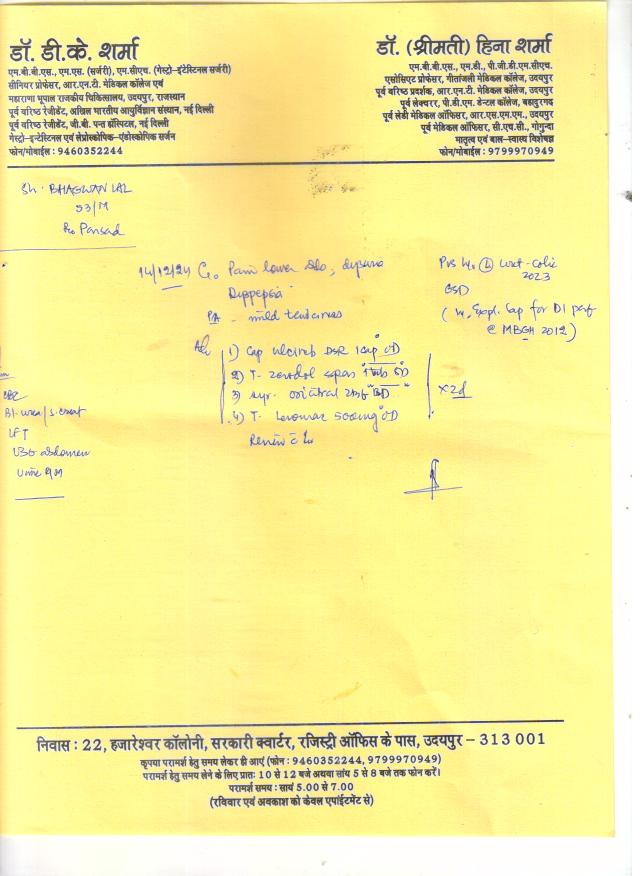 डॉ. डी.के. शर्मा
एम.बी.बी.एस., एम.एस. (सर्जरी), एम.सीएच. (गेस्ट्रो-इंटेस्टिनल सर्जरी)
सीनियर प्रोफेसर, आर.एन.टी. मेडिकल कॉलेज एवं
महाराणा भूपाल राजकीय चिकित्सालय, उदयपुर, राजस्थान
पूर्व वरिष्ठ रेजीडेंट, अखिल भारतीय आयुर्विज्ञान संस्थान, नई दिल्ली
पूर्व वरिष्ठ रेजीडेंट, जी.बी. पन्त हॉस्पिटल, नई दिल्ली
गेस्ट्रो-इन्टेस्टिनल एवं लेप्रोस्कोपिक-एंडोस्कोपिक सर्जन
फोन/मोबाईल : 9460352244
डॉ. (श्रीमती) हिना शर्मा
एम.बी.बी.एस., एम.डी., पी.जी.डी.एम.सीएच.
एसोसिएट प्रोफेसर, गीतांजली मेडिकल कॉलेज, उदयपुर
पूर्व वरिष्ठ प्रदर्शक, आर.एन.टी. मेडिकल कॉलेज, उदयपुर
पूर्व लेक्चरर, पी.डी.एम. डेन्टल कॉलेज, बहादुरगढ़
पूर्व लेडी मेडिकल ऑफिसर, आर.एस.एम.एम., उदयपुर
पूर्व मेडिकल ऑफिसर, सी.एच.सी., गोगुन्दा
मातृत्व एवं बाल-स्वास्थ्य विशेषज्ञ
फोन/मोबाईल : 9799970949
Sh. BHAGWAN LAL
53/M
Parsad
14/12/24 C/o Pain lower abdo, dysuria
Dyspepsia
PA - mild tenderness
Pvs h/o (L) uret-colic
2023
GSD
(h/o Expl. lap for DI perf
@ MBGH 2012)
Adv
1) Cap DSR 1cap OD
2) T- zerodol 1tab BD
3) syr. BD
4) T. 500mg OD
Review
CBC
Bl-urea/s.creat
LFT
USG abdomen
Urine R/M
निवास : 22, हजारेश्वर कॉलोनी, सरकारी क्वार्टर, रजिस्ट्री ऑफिस के पास, उदयपुर – 313 001
कृपया परामर्श हेतु समय लेकर ही आएं (फोन : 9460352244, 9799970949)
परामर्श हेतु समय लेने के लिए प्रातः 10 से 12 बजे अथवा सांय 5 से 8 बजे तक फोन करें।
परामर्श समय : सायं 5.00 से 7.00
(रविवार एवं अवकाश को केवल एपांईटमेंट से)